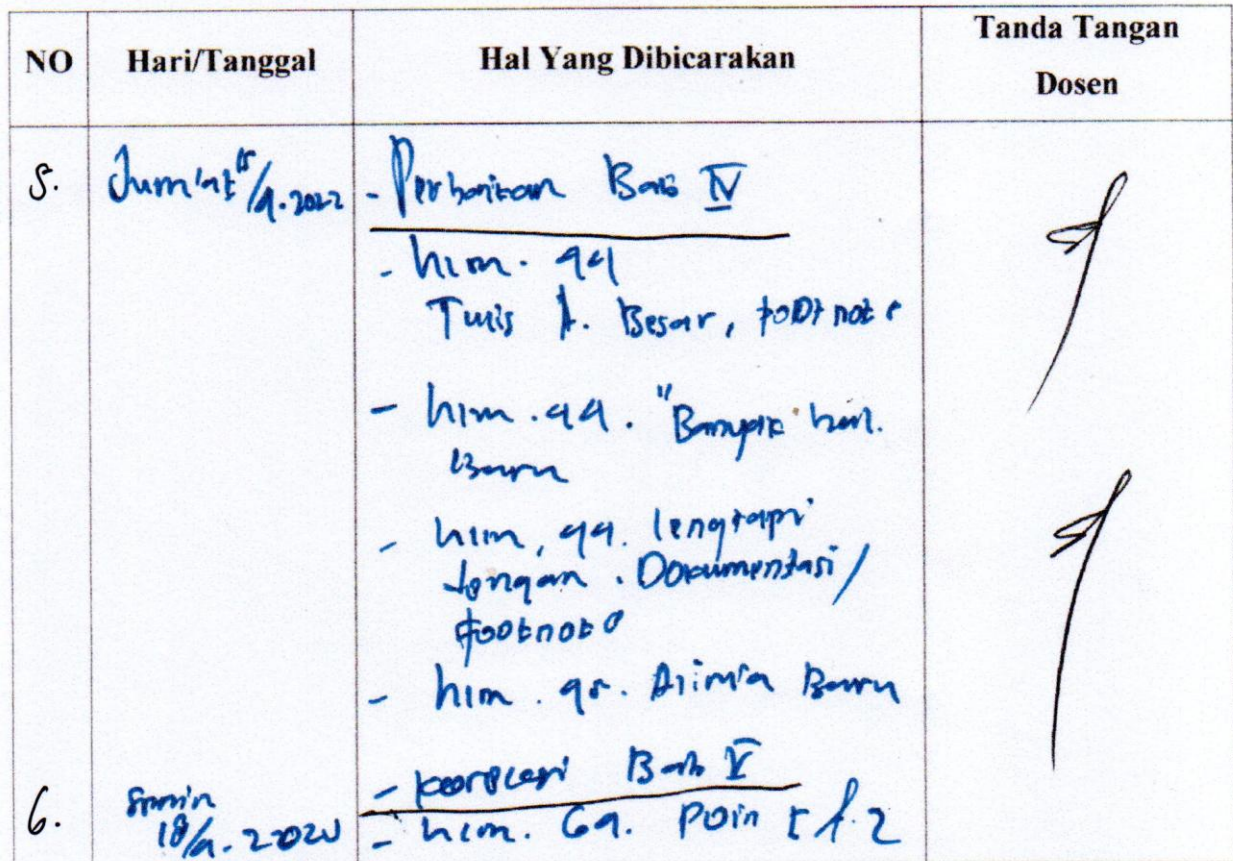 NO Hari/Tanggal Hal Yang Dibicarakan Tanda Tangan
Dosen
5. Jum'at /9.2022 - Perbaikan Bab IV
- hlm. 44
Tulis H. Besar, footnote
- hlm. 44. "Banyak hal.
Baru
- hlm, 44. lengkapi
dengan . Dokumentasi/
footnote
- hlm. 45. Alinia Baru
- Bab V
6. Senin - hlm. 69. Poin
18/9.